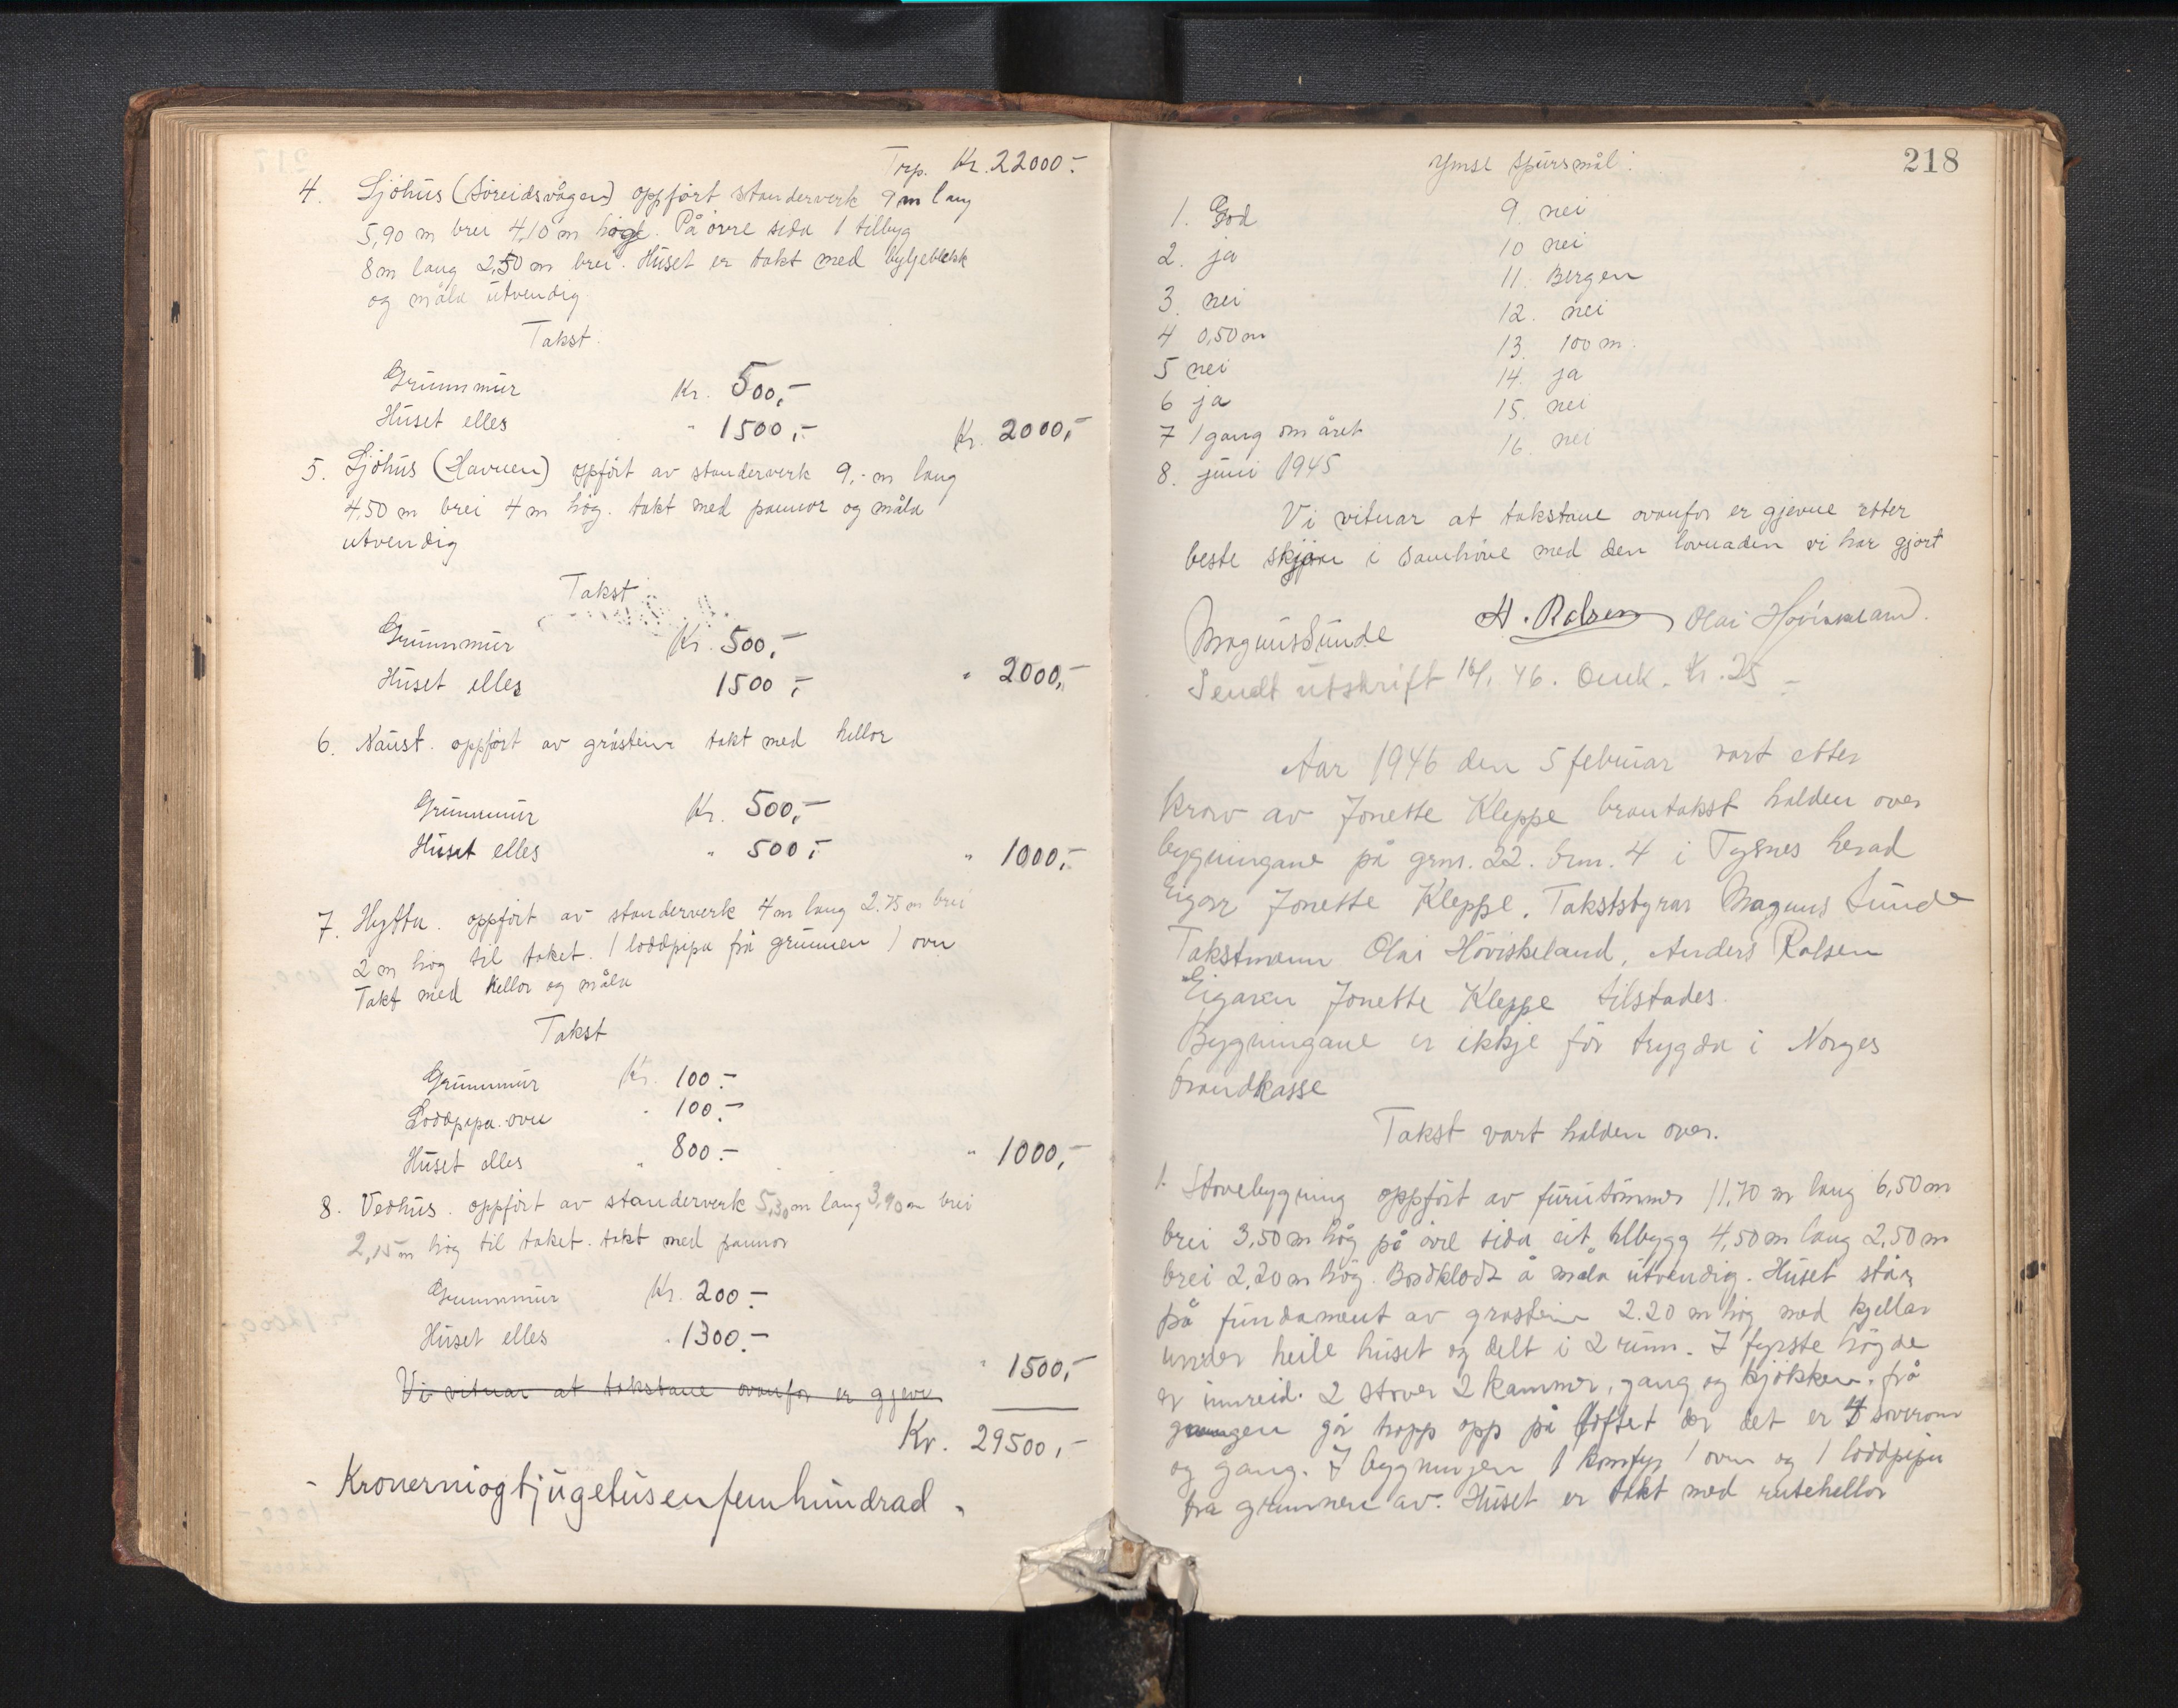 Trp. Kr. 22000.-
4. Sjöhus (Söreidsvågen) oppfört standerverk 9 m lang
5,90 m brei 4,10 m høge. På övre sida 1 tilbyg
8 m lang 2,50 m brei. Huset er takt med bylgeblekk
og måla utvendig
Takst.
Grunnmur Kr. 500,-
Huset elles " 1500,- Kr. 2000,-
5. Sjöhus (Havnen) oppfört av standerverk 9,- m lang
4,50 m brei 4 m høg. takt med pannor og måla
utvendig
Takst
Grunnmur Kr. 500,-
Huset elles 1500,- " 2000,-
6. Naust. oppfört av gråstein takt med hellor
Grunnmur Kr. 500,-
Huset elles " 500,- " 1000,-
7. Hytta. oppfört av standerverk 4 m lang 2.75 m brei
2 m høg til taket. 1 loddpipa frå grunnen 1 ovn
Takt med hellor og måla
Takst
Grunnmur Kr. 100.-
Loddpipa. ovn " 100.-
Huset elles " 800.- " 1000,-
8. Vedhus. oppfört av standerverk 5,30 m lang 3,90 m brei
2,15 m høg til taket. takt med pannor
Grunnmur Kr. 200.-
Huset elles " 1300.-
" 1500,-
Vi vitnar at takstane ovanfor er gjevn
Kr. 29500,-
- Kronerniogtjugetusenfemhundrad -
218
Ymse spursmål:
1. God
2. ja
3. nei
4 0,50 m
5 nei
6 ja
7 1 gang om året
8. juni 1945
9. nei
10 nei
11. Bergen
12. nei
13. 100 m.
14. ja
15. nei
16. nei
Vi vitnar at takstane ovanfor er gjevne etter
beste skjön i samhöve med den lovnaden vi har gjort
Magnus Sunde H. Rolsen Olai Höviskeland.
Sendt utskrift 16/1 46. Omk. kr. 25 -
Aar 1946 den 5 februar vart etter
krav av Jonette Kleppe brantakst halden over
bygningane på grnr. 22. brnr. 4 i Tysnes herad
Eigar Jonette Kleppe. Takststyrar Magnus Sunde
Takstmenn Olai Höviskeland, Anders Rolsen
Eigaren Jonette Kleppe tilstades.
Bygningane er ikkje för trygda i Norges
brandkasse
Takst vart halden over.
1. Stovebygning oppfört av furutömmer 11,70 m lang 6,50 m
brei 3,50 m høg på övre sida eit tilbygg 4,50 m lang 2,50 m
brei 2,20 m høg. Bordkledt å måla utvendig. Huset står
på fundament av gråstein 2.20 m høg med kjellar
under heile huset og delt i 2 rum. I fyrste högde
er innreid. 2 stover 2 kammer, gang og kjökken. frå
gangen går trapp opp på loftet der det er 4 soverom
og gang. I bygningen 1 komfyr 1 ovn og 1 loddpipa
fra grunnen av. Huset er takt med rutehellor